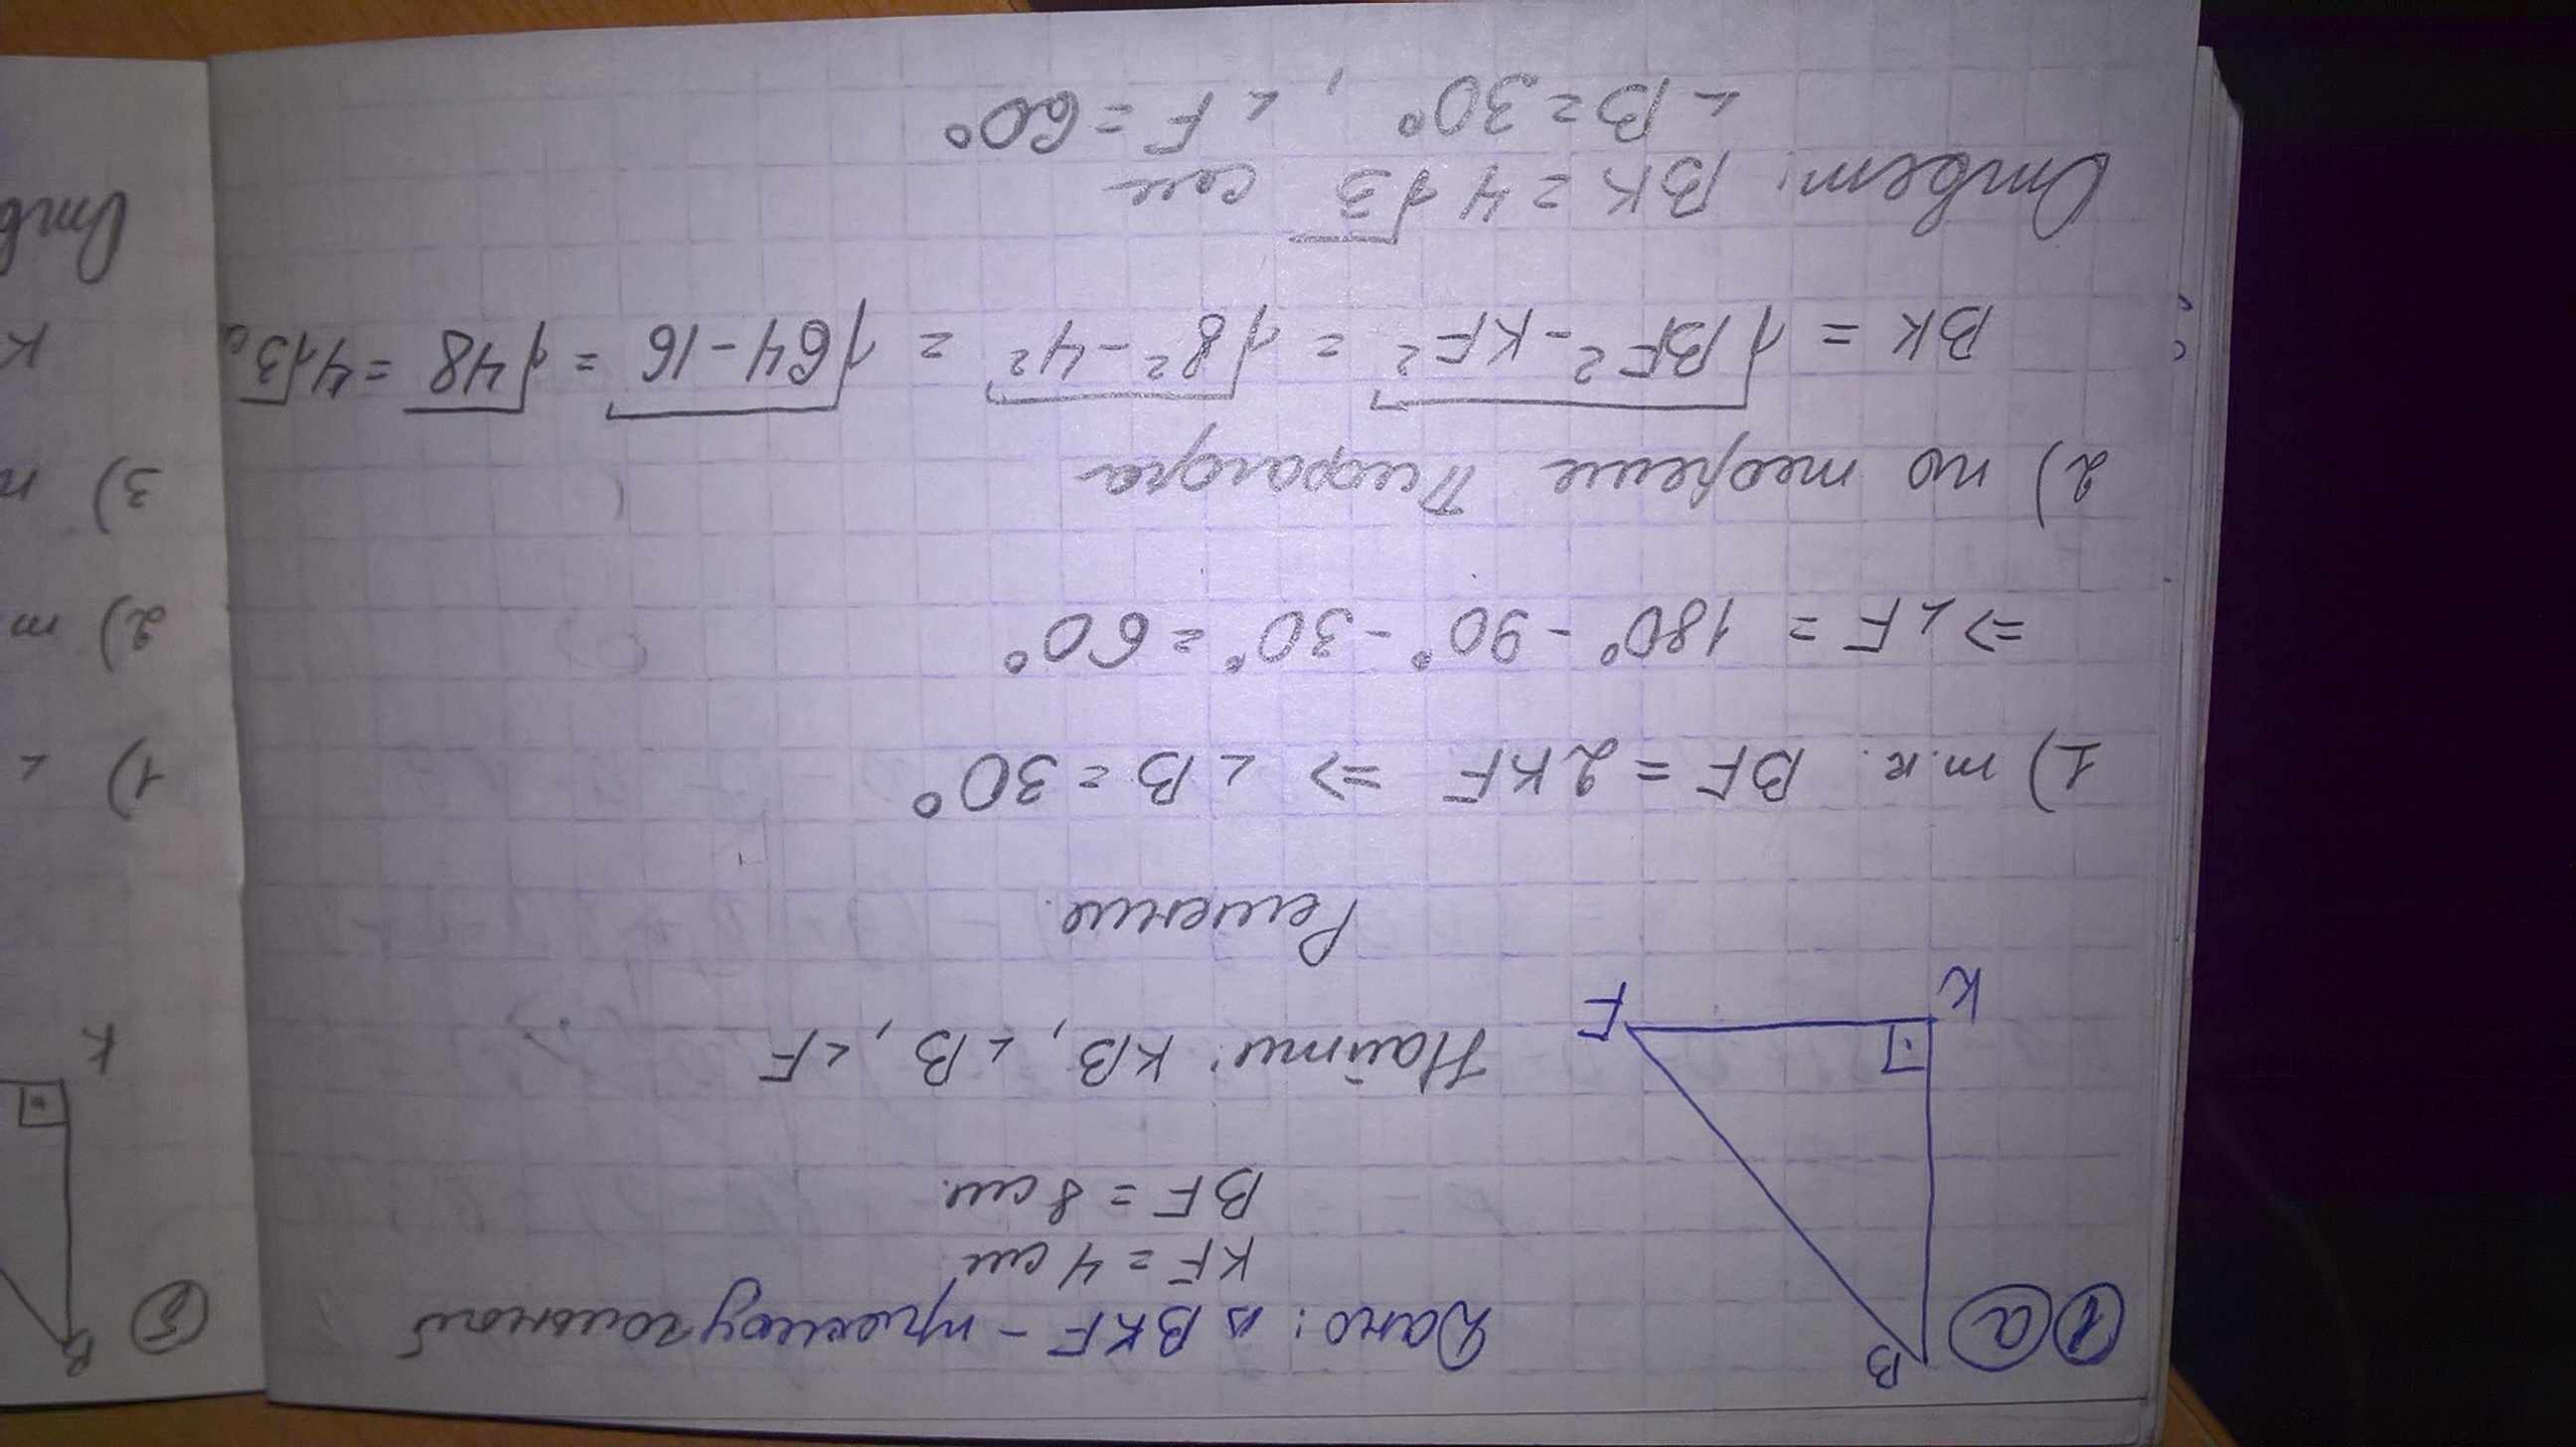 1 a
B
K
F
Дано: △ BKF - прямоугольный
KF = 4 см
BF = 8 см.
Найти: KB, ∠B, ∠F
Решение.
1) т.к. BF = 2KF ⇒ ∠B = 30°
⇒ ∠F = 180° - 90° - 30° = 60°
2) по теореме Пифагора
BK = √BF² - KF² = √8² - 4² = √64 - 16 = √48 = 4√3
Ответ: BK = 4√3 см
∠B = 30°, ∠F = 60°
б
B
K
1) ∠
2) т
3) п
K
Отв